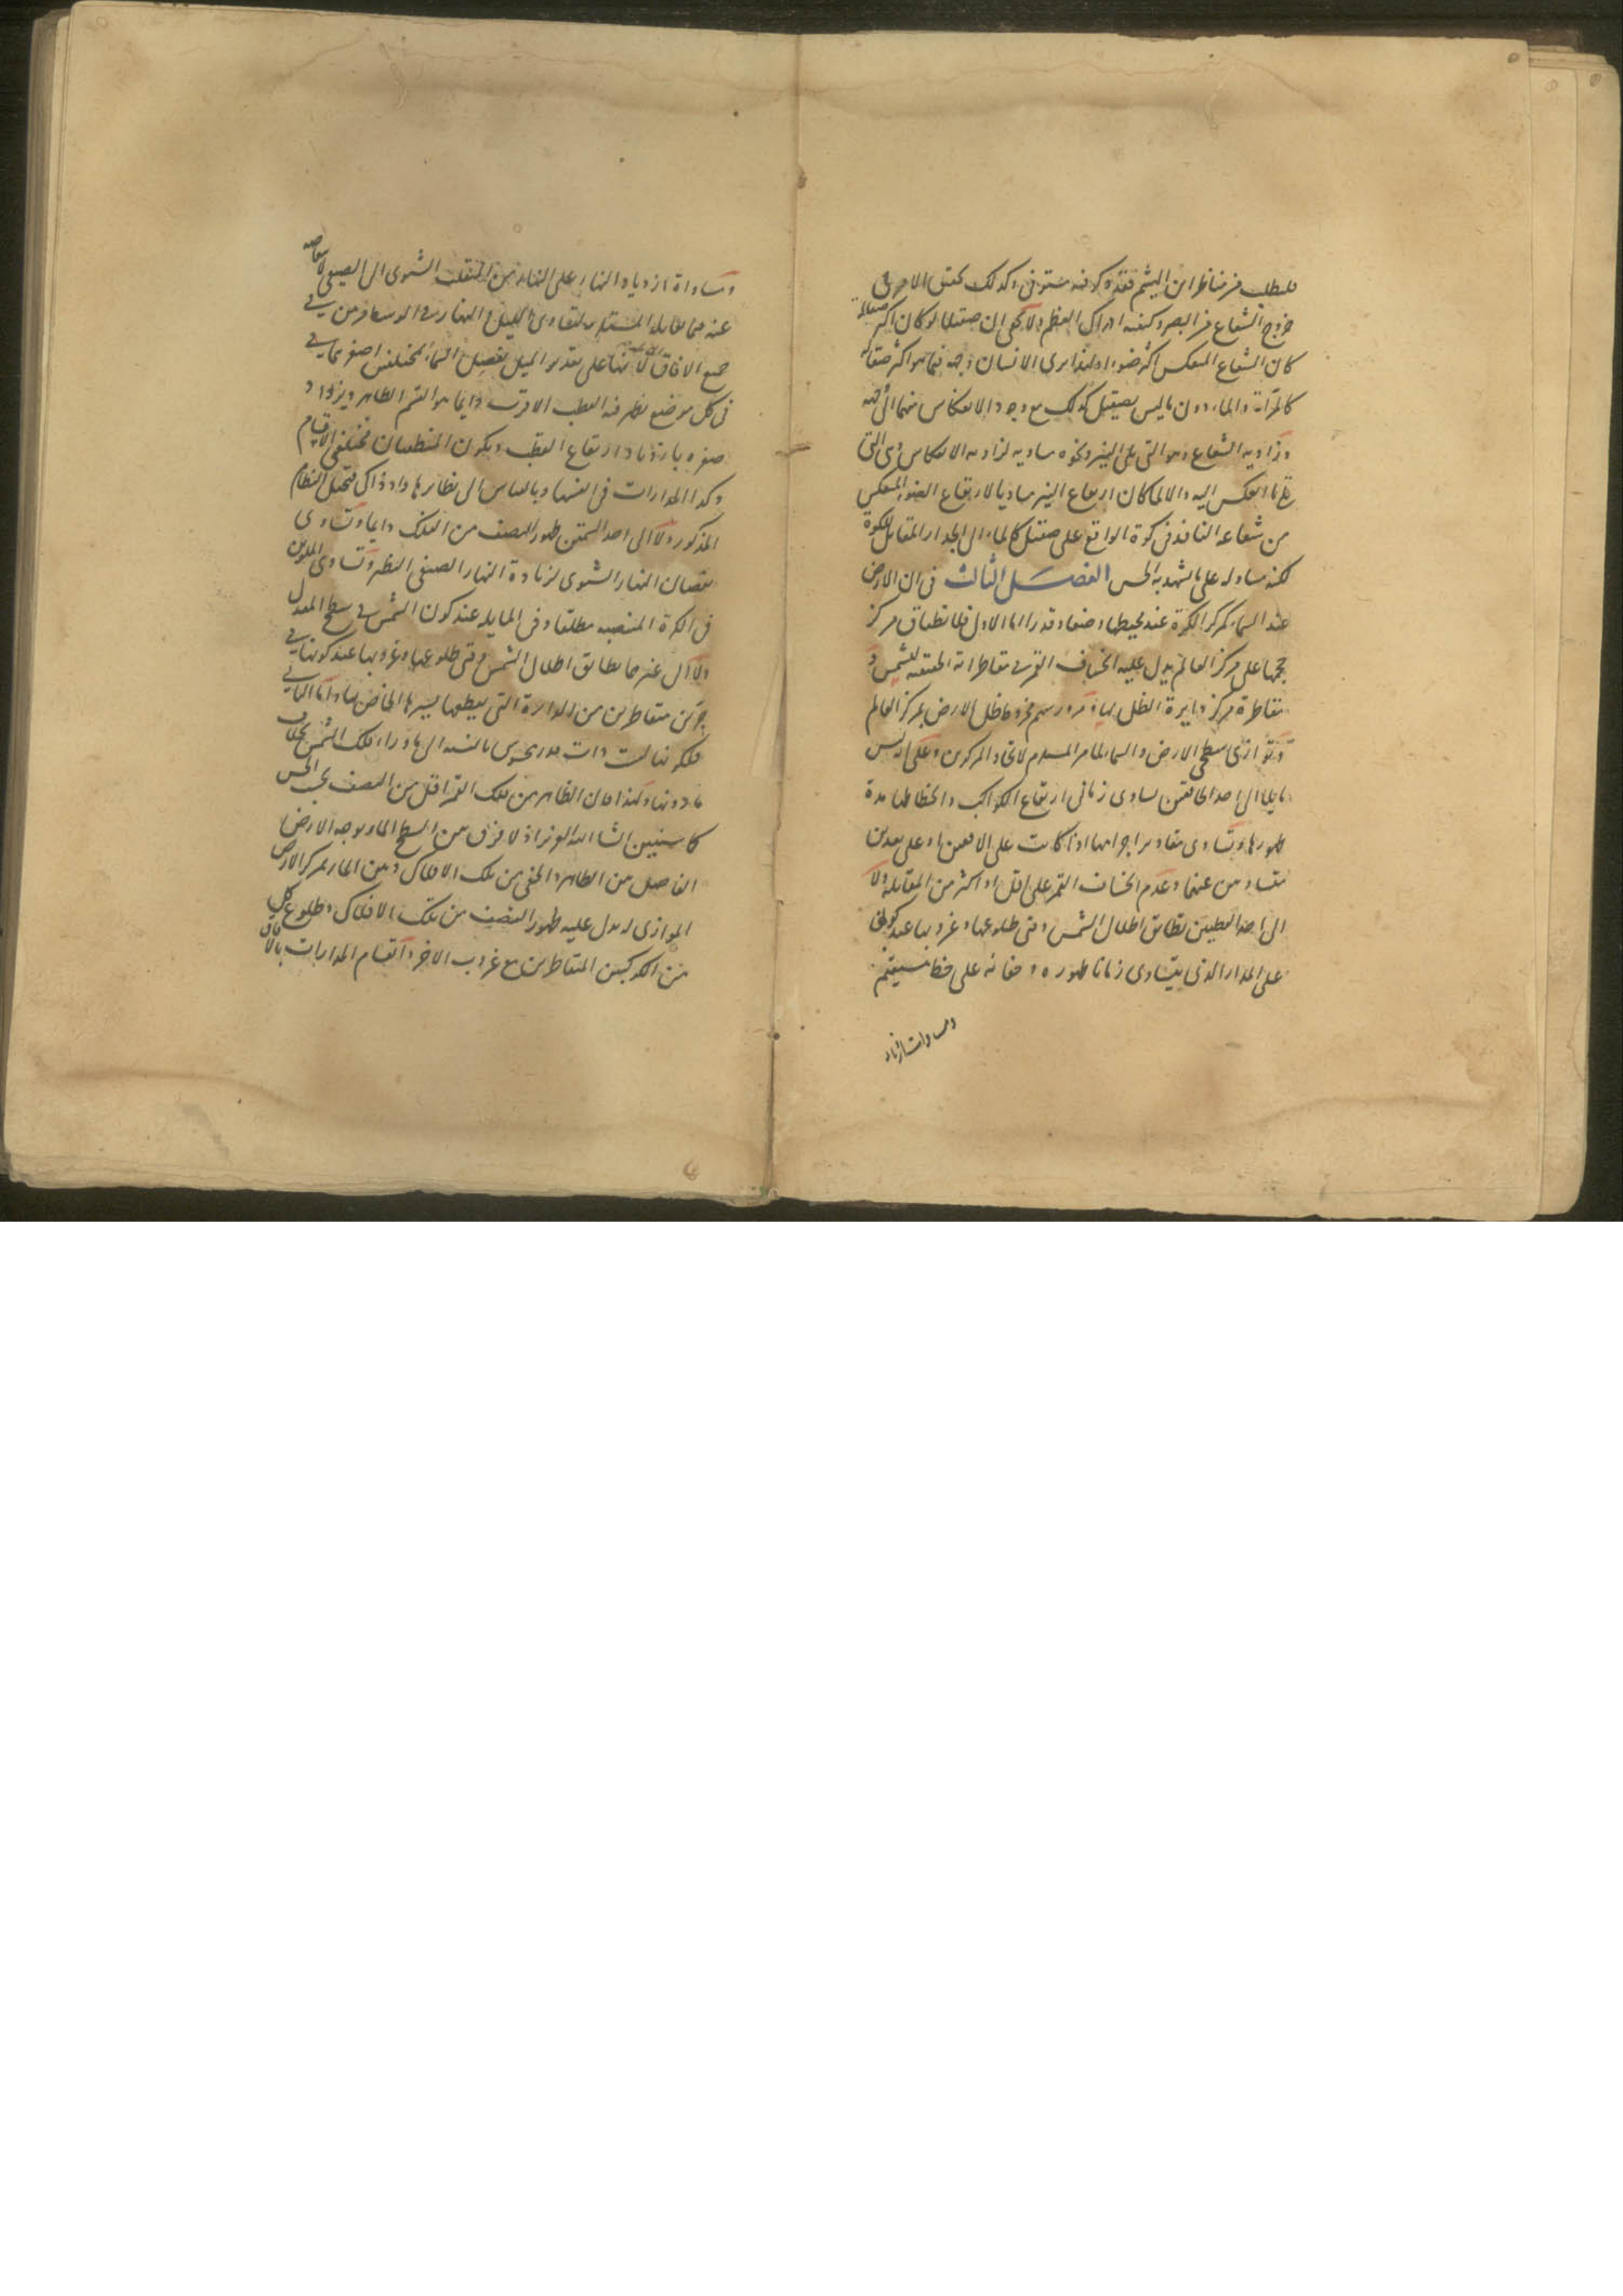 فليطلب من مناظر ابن الهيثم فقد ذكر فيه مستوفى وكذلك تحقيق الامر في
خروج الشعاع من البصر وكيفية ادراك العظم ولا يخفى ان صقيلا لو كان اكثر صقالة
كان الشعاع المنعكس اكثر ضوءا ولهذا يرى الانسان وجهه فيما هو اكثر صقالة
كالمرآة والماء دون ما ليس بصقيل كذلك مع وجود الانعكاس منهما الى جهته
وزاوية الشعاع وهو التي تلي النير ونحوه مساوية لزاوية الانعكاس وهي التي
تلي ما انعكس اليه والا لما كان ارتفاع النير مساويا لارتفاع الضوء المنعكس
من شعاعه النافذ في كوة الواقع على صقيل كالماء الى الجدار المقابل للكوة
لكنه مساو له على ما شهد به الحس الفصل الثالث في ان الارض
عند السماء كمركز الكرة عند محيطها وضعا وقدرا اما الاول فلانطباق مركز
حجمها على مركز العالم يدل عليه انخساف القمر في مقاطراته الحقيقية للشمس و
مقاطرة مركز دايرة الظل لها ومرور سهم مخروط ظل الارض بمركز العالم
وتوازي سطحي الارض والسماء لما مر المستلزم لاتحاد المركزين وعلى انه ليس
مايلا الى احد الخافقين تساوي زماني ارتفاع الكواكب وانحطاطها مدة
ظهورها وتساوي مقادير اجرامها اذا كانت على الافقين او على بعدين
متساويين عنهما وعدم انخساف القمر على اقل او اكثر من المقابلة ولا
الى احد القطبين تطابق اظلال الشمس وقتي طلوعها وغروبها عند كونها
على المدار الذي يتساوى زمانا ظهوره وخفائه على خط مستقيم
ومساواة ازدياد
ومساواة ازدياد النهار على النهار من المنقلب الشتوي الى الصيفي لانتقاصه
عنه فيما يقابله المستلزم لتساوي الليل والنهار في الوسط من
جميع الآفاق لانها على تقدير الميل تفصل السماء بمختلفين اصغرهما في
في كل موضع يظهر فيه القطب الاقرب دايما هو القسم الظاهر ويزداد
صغره بازدياد ارتفاع القطب ويكون المنطقتان مختلفي الاقسام
وكذا المدارات في انفسها وبالقياس الى نظايرها واذ ذاك فيختل النظام
المذكور ولا الى احد السمتين ظهور النصف من الفلك دايما وتساوي
نقصان النهار الشتوي لزيادة النهار الصيفي النظير وتساوي الملوين
في الكرة المنتصبة مطلقا وفي المايلة عند كون الشمس في سطح المعدل
ولا الى غيرها تطابق اظلال الشمس وقتي طلوعها وغروبها عند كونها في
جزئين متقاطرين من الدايرة التي يقطعها بسيرها الخاص بها واما الثاني
فلكونها ليست ذات قدر محسوس بالنسبة الى ما وراء فلك الشمس بخلاف
ما دونها ولهذا كان الظاهر من فلك القمر اقل من النصف بحسب الحس
كما سنبين ان شاء الله العزيز اذ لا فرق بين السطح المار بوجه الارض
الفاصل بين الظاهر والخفي من تلك الافلاك وبين المار بمركز الارض
الموازي له يدل عليه ظهور النصف من تلك الافلاك وطلوع كل
من الكوكبين المتقاطرين مع غروب الاخر وانقسام المدارات بالآفاق